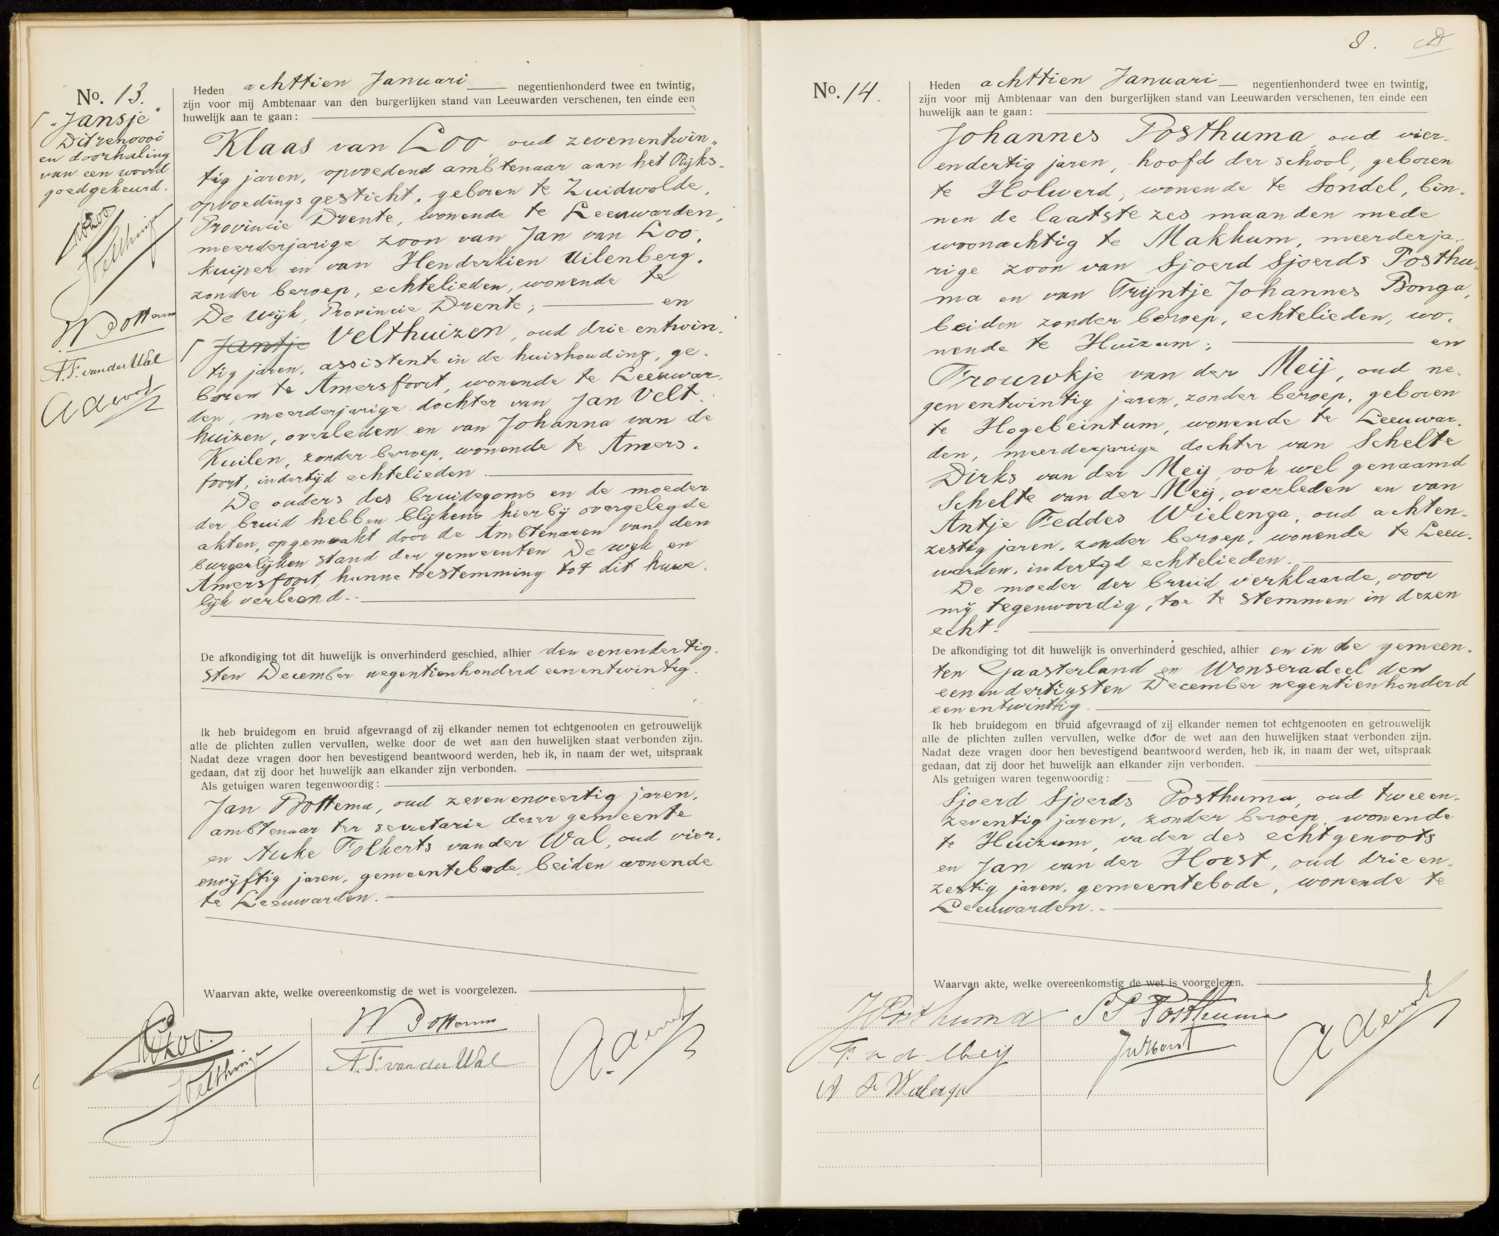 No. 13.
"Jansje"
Dit renvooi
en doorhaling
van een woord
goedgekeurd.
KvLoo
JVelthuizen
W Bottema
A. F. van der Wal
Heden achttien Januari negentienhonderd twee en twintig,
zijn voor mij Ambtenaar van den burgerlijken stand van Leeuwarden verschenen, ten einde een
huwelijk aan te gaan:
Klaas van Loo oud zevenentwin-
tig jaren, opvoedend ambtenaar aan het Rijks-
opvoedingsgesticht, geboren te Zuidwolde,
Provincie Drente, wonende te Leeuwarden,
meerderjarige zoon van Jan van Loo,
kuiper en van Henderkien Uilenberg,
zonder beroep, echtelieden, wonende te
De Wijk, Provincie Drente; en
Jantje Velthuizen, oud drie entwin-
tig jaren, assistente in de huishouding, ge-
boren te Amersfoort, wonende te Leeuwar-
den, meerderjarige dochter van Jan Velt-
huizen, overleden en van Johanna van de
Kuilen, zonder beroep, wonende te Amers-
foort, indertijd echtelieden
De ouders des bruidegoms en de moeder
der bruid hebben blijkens hierbij overgelegde
akten, opgemaakt door de Ambtenaren van den
burgerlijken stand der gemeenten De Wijk en
Amersfoort, hunne toestemming tot dit huwe-
lijk verleend.-
De afkondiging tot dit huwelijk is onverhinderd geschied, alhier den eenendertig-
sten December negentienhonderd eenentwintig.
Ik heb bruidegom en bruid afgevraagd of zij elkander nemen tot echtgenooten en getrouwelijk
alle de plichten zullen vervullen, welke door de wet aan den huwelijken staat verbonden zijn.
Nadat deze vragen door hen bevestigend beantwoord werden, heb ik, in naam der wet, uitspraak
gedaan, dat zij door het huwelijk aan elkander zijn verbonden.
Als getuigen waren tegenwoordig:
Jan Bottema, oud zevenenveertig jaren,
ambtenaar ter secretarie dezer gemeente
en Auke Folkerts van der Wal, oud vier-
envijftig jaren, gemeentebode, beiden wonende
te Leeuwarden.
Waarvan akte, welke overeenkomstig de wet is voorgelezen.
KvLoo.
JVelthuizen
W Bottema
A. F. van der Wal
8.
No. 14.
Heden achttien Januari negentienhonderd twee en twintig,
zijn voor mij Ambtenaar van den burgerlijken stand van Leeuwarden verschenen, ten einde een
huwelijk aan te gaan:
Johannes Posthuma, oud vier-
endertig jaren, hoofd der school, geboren
te Holwerd, wonende te Sondel, bin-
nen de laatste zes maanden mede
woonachtig te Makkum, meerderja-
rige zoon van Sjoerd Sjoerds Posthu-
ma en van Trijntje Johannes Bonga,
beiden zonder beroep, echtelieden, wo-
nende te Huizum; en
Trouwkje van der Meij, oud ne-
gen entwintig jaren, zonder beroep, geboren
te Hogebeintum, wonende te Leeuwar-
den, meerderjarige dochter van Schelte
Dirks van der Meij ook wel genaamd
Schelte van der Meij, overleden en van
Antje Feddes Wielenga, oud achten-
zestig jaren, zonder beroep, wonende te Leeu-
warden, indertijd echtelieden.
De moeder der bruid verklaarde, voor
mij tegenwoordig, toe te stemmen in dezen
echt.
De afkondiging tot dit huwelijk is onverhinderd geschied, alhier en in de gemeen-
ten Gaasterland en Wonseradeel den
eenendertigsten December negentienhonderd
eenentwintig.
Ik heb bruidegom en bruid afgevraagd of zij elkander nemen tot echtgenooten en getrouwelijk
alle de plichten zullen vervullen, welke door de wet aan den huwelijken staat verbonden zijn.
Nadat deze vragen door hen bevestigend beantwoord werden, heb ik, in naam der wet, uitspraak
gedaan, dat zij door het huwelijk aan elkander zijn verbonden.
Als getuigen waren tegenwoordig:
Sjoerd Sjoerds Posthuma, oud tweeen-
zeventig jaren, zonder beroep, wonende
te Huizum, vader des echtgenoots
en Jan van der Horst, oud drieen-
zestig jaren, gemeentebode, wonende te
Leeuwarden.-
Waarvan akte, welke overeenkomstig de wet is voorgelezen.
JPosthuma
T. v d Meij
A F Wielenga
S S Posthuma
JvdHorst